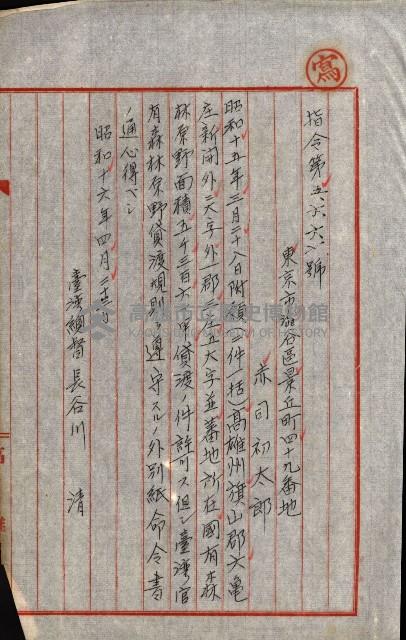 寫
指令第五六六八號
東京市澁谷區景丘町四十九番地
赤司初太郎
昭和十五年三月二十八日附願(二件一括)高雄州旗山郡六亀
庄新開外三大字外一郡二庄五大字並蕃地所在國有森
林原野面積五千三百六十甲貸渡ノ件許可ス但シ臺灣官
有森林原野貸渡規則ヲ遵守スルノ外別紙命令書
ノ通心得ヘシ
昭和十六年四月二十三日
臺灣總督長谷川 清
高雄市立歷史博物館